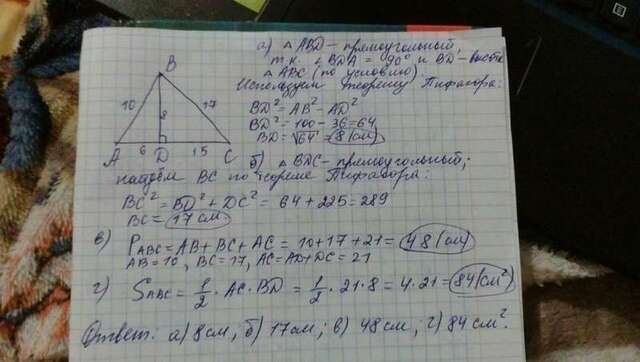 а) △ABD - прямоугольный,
т.к. ∠BDA = 90° и BD -
△ABC (по условию)
Используем теорему Пифагора:
BD² = AB² - AD²
BD² = 100 - 36 = 64
BD = √64 = 8 (см)
B
10
8
17
A
6
D
15
C
б) △BDC - прямоугольный;
найдём BC по теореме Пифагора:
BC² = BD² + DC² = 64 + 225 = 289
BC = 17 см
в) PABC = AB + BC + AC = 10 + 17 + 21 = 48 (см)
AB = 10, BC = 17, AC = AD + DC = 21
г) SABC = 1/2 · AC · BD = 1/2 · 21 · 8 = 4 · 21 = 84 (см²)
Ответ: а) 8 см; б) 17 см; в) 48 см; г) 84 см².